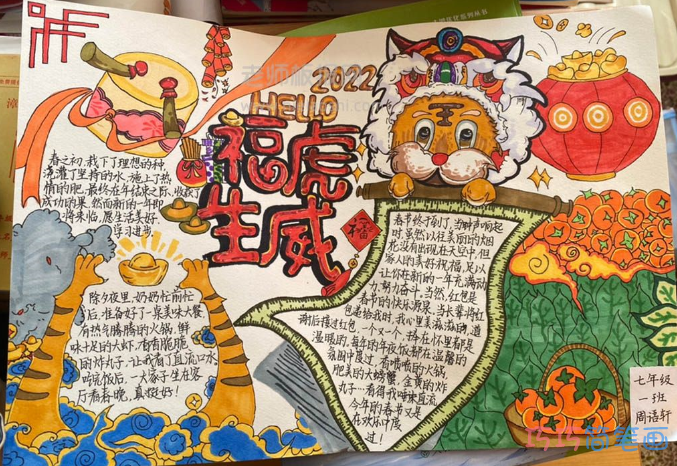 2022
HELLO
福虎
生威
福
春之初,我下了理想的种,
浇灌了坚持的水,施上了热
情的肥,最终在年结束之际,收获了
成功的果,然而新的一年即
将来临,愿生活美好,
学习进步
除夕夜里,奶奶忙前忙
后,准备好了一桌美味大餐
有热气腾腾的火锅,鲜
味十足的大虾,香香脆脆
的炸丸子,让我看了直流口水
吃完饭后,一大家子坐在客
厅看春晚,真挺好!
春节终于到了,当钟声响起
时,虽然以往美丽的烟
花没有出现在天空中,但
家人的美好祝福,足以
让你在新的一年充满动
力,努力奋斗,当然,红包是
春节的快乐源泉,当长辈将红
包递给我时,我心里美滋滋的,道
谢后接过红包,一个又一个,捧在心里都是
温暖的,每年的年夜饭都在温馨的
氛围中度过,香喷喷的火锅,
肥美的大螃蟹,金黄的炸
丸子…看得我口味直流
今年的春节又是
在欢乐中度
过!
七年级
一班
周语轩
巧巧简笔画